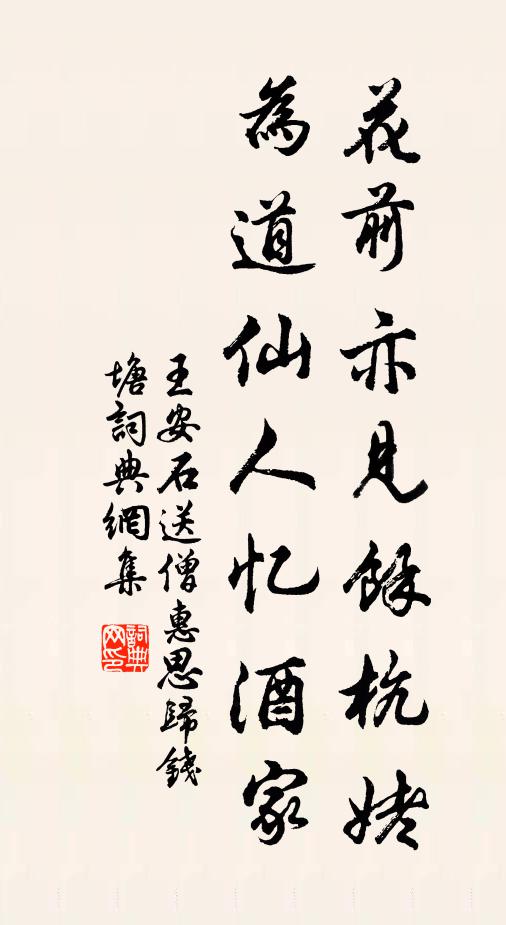 花前亦見餘杭姥
為道仙人忆酒家
王安石送僧惠思歸錢
塘詞典網集
詞典
网印